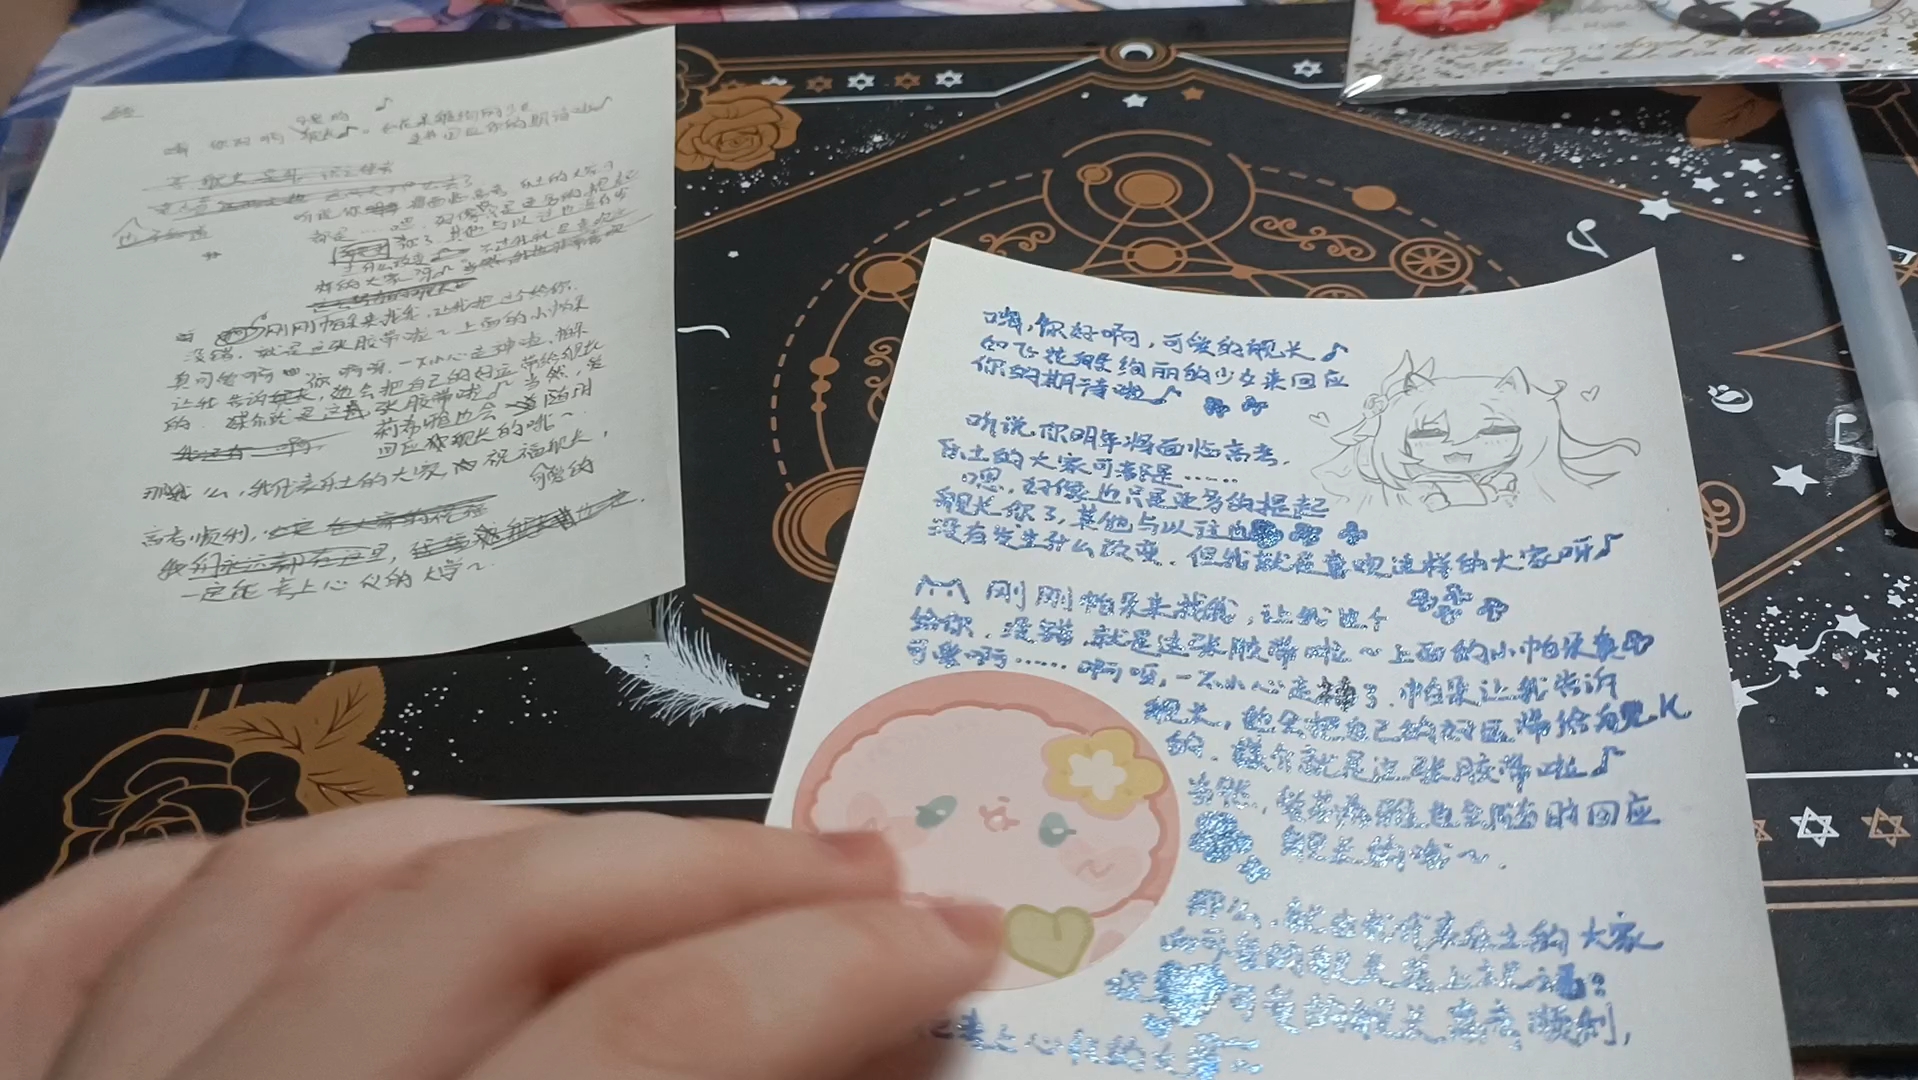 嗨 你好啊
听说你 面临高考 乐土的大家可
都是……嗯,好像
你了,其他与以过也没有发
生什么改变
样的大家呀♪
刚刚帕朵来找我,让我把这个给你.
没错,就是这张胶带啦~上面的小帕朵
真可爱啊 啊呀,一不小心走神啦,帕朵
让我告诉 她会把自己的好运带给舰长
的. 媒介就是这张胶带啦♪ 当然,爱
莉希雅也会 随时
回应 舰长的哦~
那么,我代表乐土的大家 祝福舰长,
可爱的
高考顺利,
我们永远都在这里,
一定能考上心仪的大学~.
嗨,你好啊,可爱的舰长♪
如飞花般绚丽的少女来回应
你的期待啦♪
听说你明年将面临高考,
乐土的大家可都是……
嗯,好像也只是更多的提起
舰长你了,其他与以过也
没有发生什么改变.但我就是喜欢这样的大家呀♪
刚刚帕朵来找我,让我把这个
给你.没错,就是这张胶带啦~上面的小帕朵真
可爱啊……啊呀,一不小心走神了.帕朵让我告诉
舰长,她会把自己的好运带给舰长
的.媒介就是这张胶带啦♪
当然,爱莉希雅也会随时回应
舰长的哦~.
那么,就由我代表乐土的大家
向可爱的舰长送上祝福:
祝 可爱的舰长高考顺利,
考上心仪的大学~